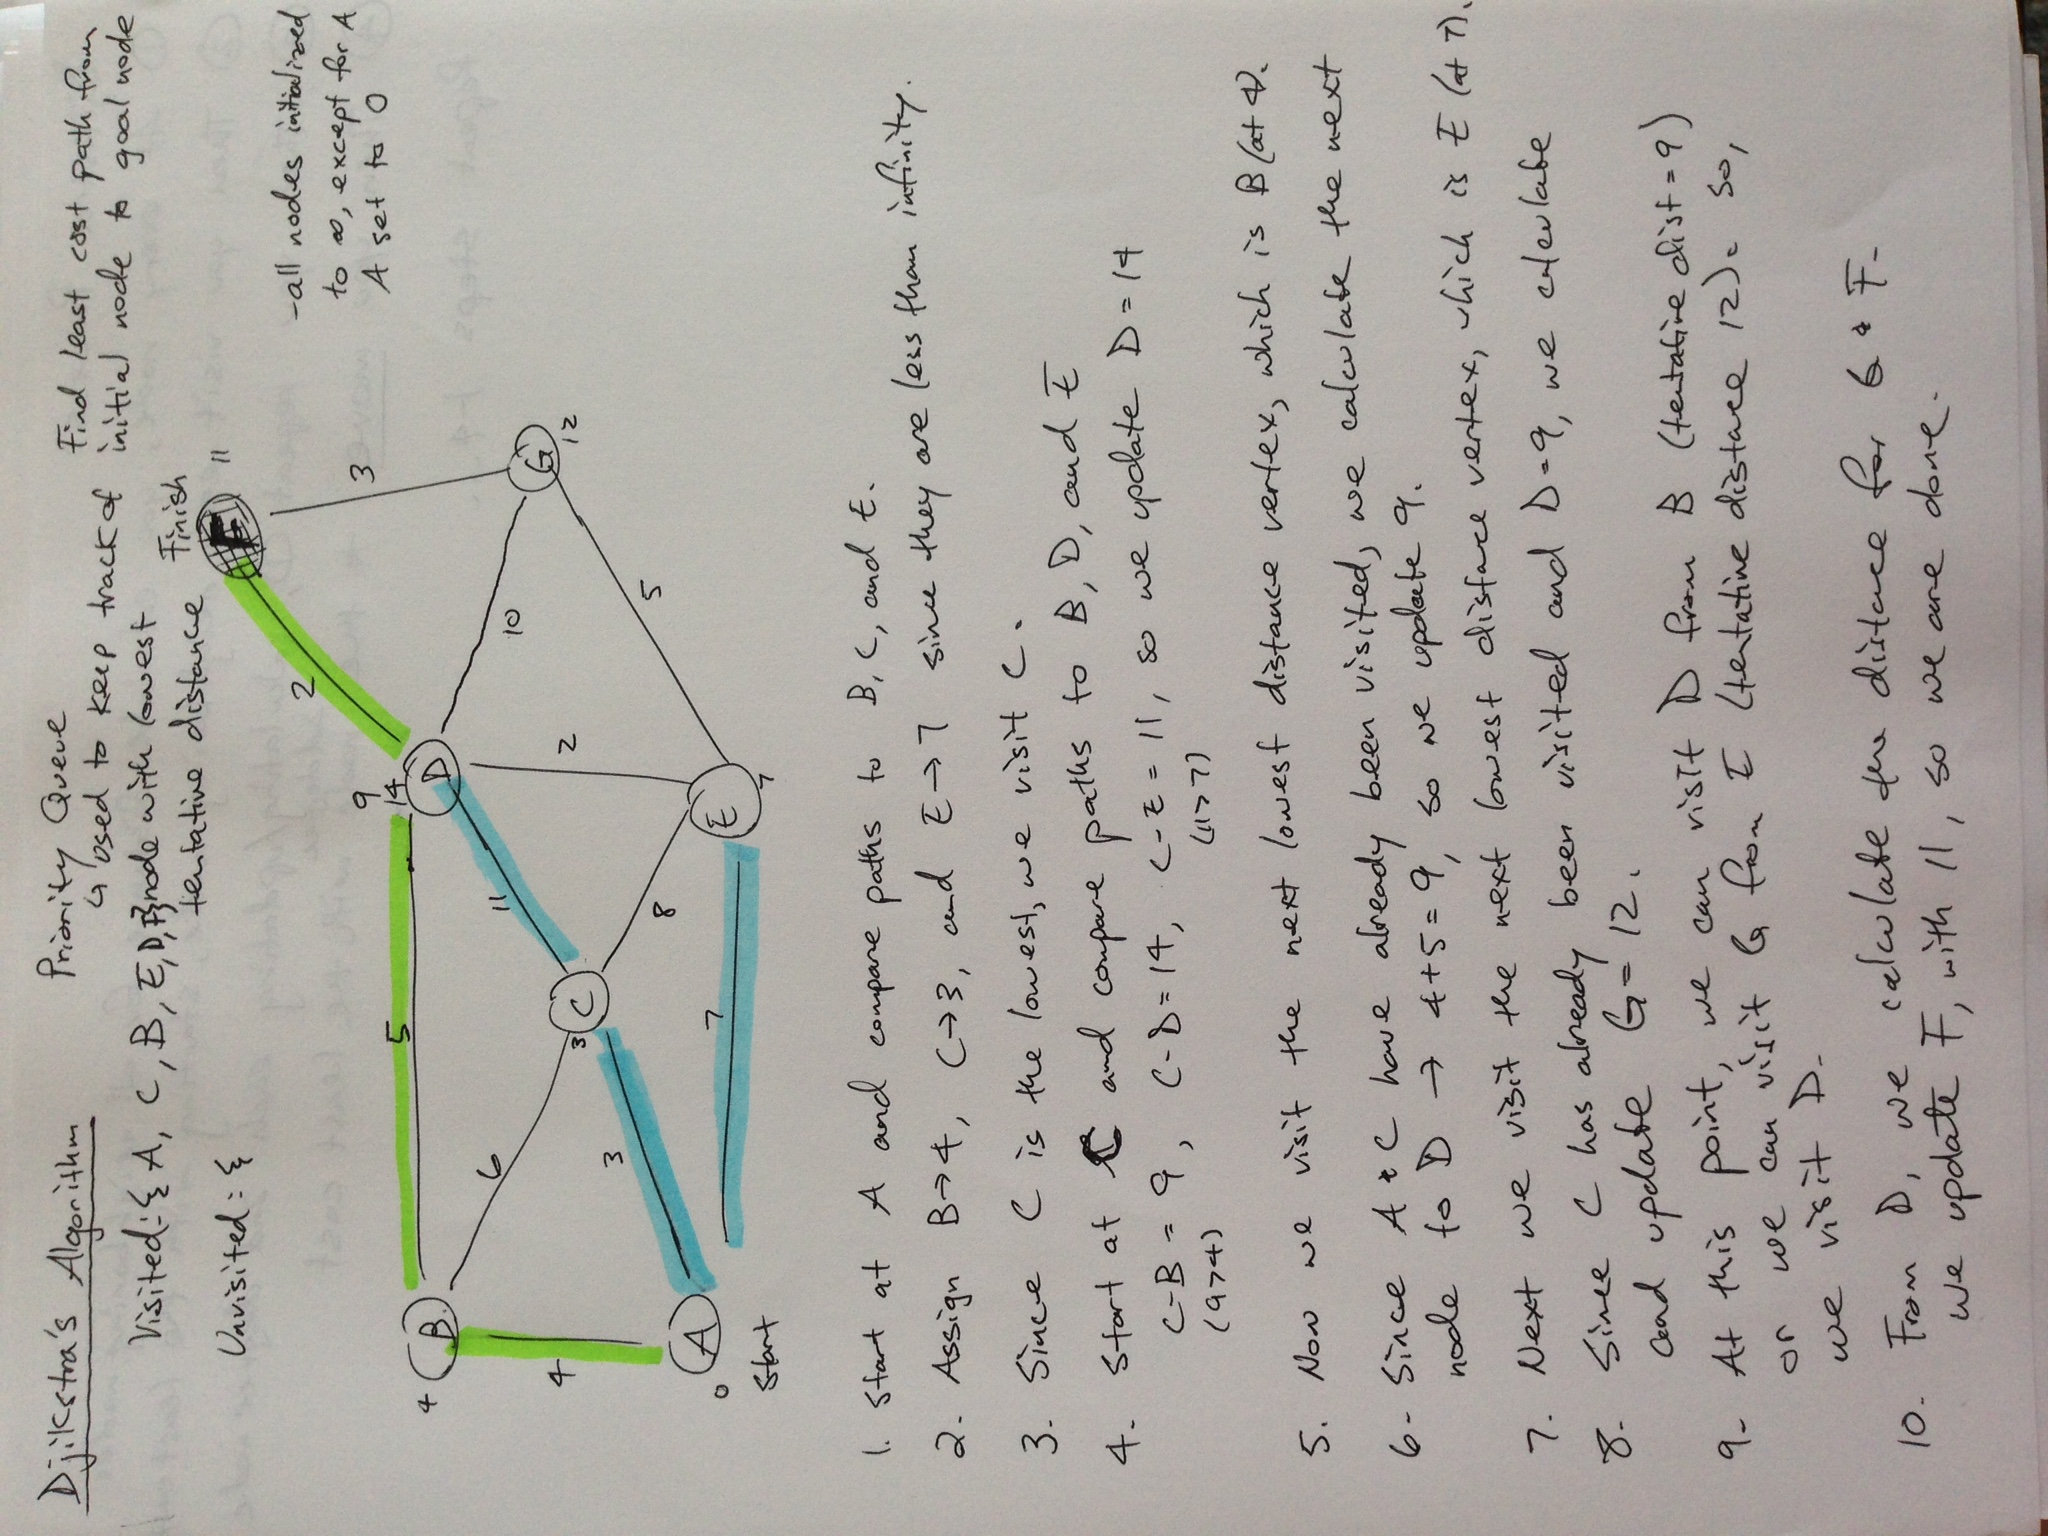 Djikstra's Algorithm
Priority Queue
↳ used to keep track of
node with lowest
tentative distance
Find least cost path from
initial node to goal node
Visited: { A, C, B, E, D, F}
Unvisited: {
Finish
F
11
-all nodes initialized
to ∞, except for A
A set to 0
2
3
9
14
5
4
B
D
6
11
10
G
12
4
3
C
2
3
8
5
A
0
7
E
7
Start
1. Start at A and compare paths to B, C, and E.
2. Assign B→4, C→3, and E→7 since they are less than infinity.
3. Since C is the lowest, we visit C.
4. Start at C and compare paths to B, D, and E
C-B = 9, C-D=14, C-E = 11, so we update D=14
(9>4) (11>7)
5. Now we visit the next lowest distance vertex, which is B (at 4).
6- Since A & C have already been visited, we calculate the next
node to D → 4+5=9, so we update 9.
7. Next we visit the next lowest distance vertex, which is E (at 7).
8- Since C has already been visited and D=9, we calculate
and update G=12.
9- At this point, we can visit D from B (tentative dist=9)
or we can visit G from E (tentative distance 12). So,
we visit D.
10. From D, we calculate the distance for G & F-
we update F, with 11, so we are done.